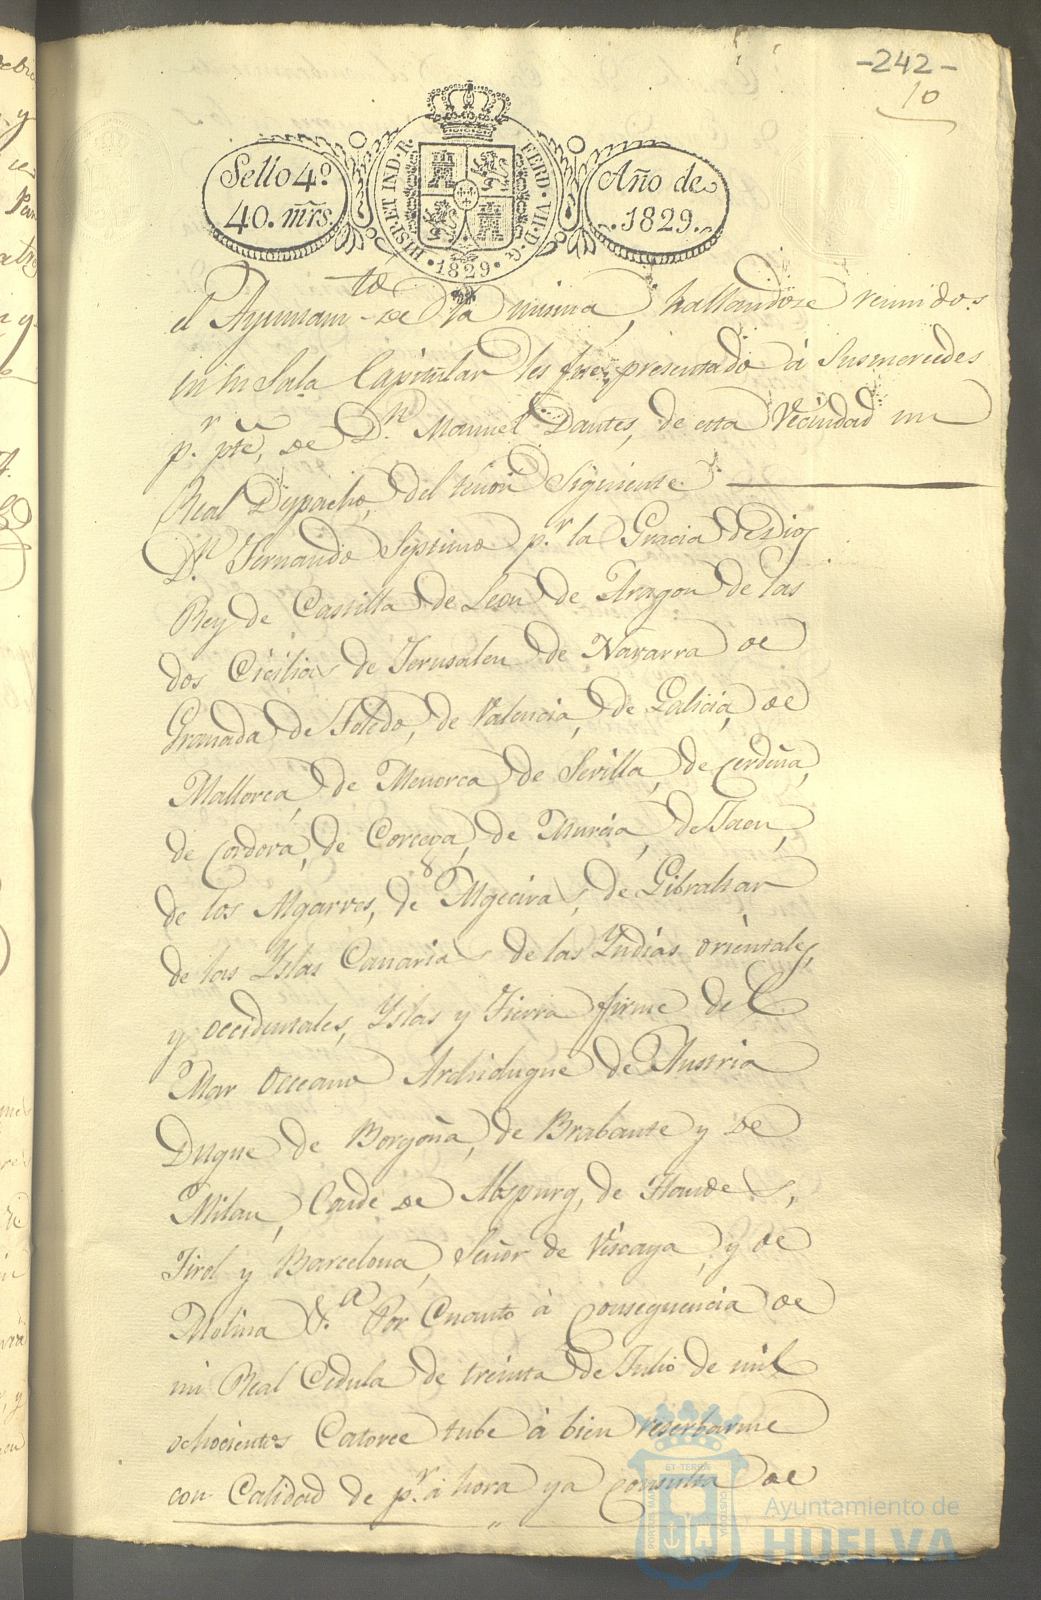 -242-
10
Sello 4º
40. mrs.
HISP. ET IND. R.
FERD. VII. D. G.
1829
Año de
1829.
el Ayuntam.to de la misma, hallandose reunidos
en su Sala Capitular les fue presentado à Susmercedes
p.r pte, de D.n Manuel Dantes, de esta Vecindad un
Real Despacho, del tenor Siguiente
D.n Fernando Septimo p.r la Gracia de Dios
Rey de Castilla de Leon de Aragon de las
dos Cicilias de Jerusalen de Navarra de
Granada de Toledo, de Valencia, de Galicia, de
Mallorca, de Menorca de Sevilla, de Cerdeña,
de Cordova, de Corcega, de Murcia, de Jaen,
de los Algarves, de Algeciras, de Gibraltar
de las Yslas Canarias de las Yndias orientales,
y occidentales, Yslas y Tierra firme del
Mar Occeano Archiduque de Austria
Duque de Borgoña, de Brabante y de
Milan, Conde de Abspurg, de Flandes,
Tirol y Barcelona, Señor de Viscaya, y de
Molina &.a Por Cuanto à consequencia de
mi Real Cedula de treinta de Julio de mil
ochocientos Catorce tube à bien reserbarme
con Calidad de p.r ahora y a consulta de
ET TERRA
PORTUS MARIS
CUSTODIA
Ayuntamiento de
HUELVA